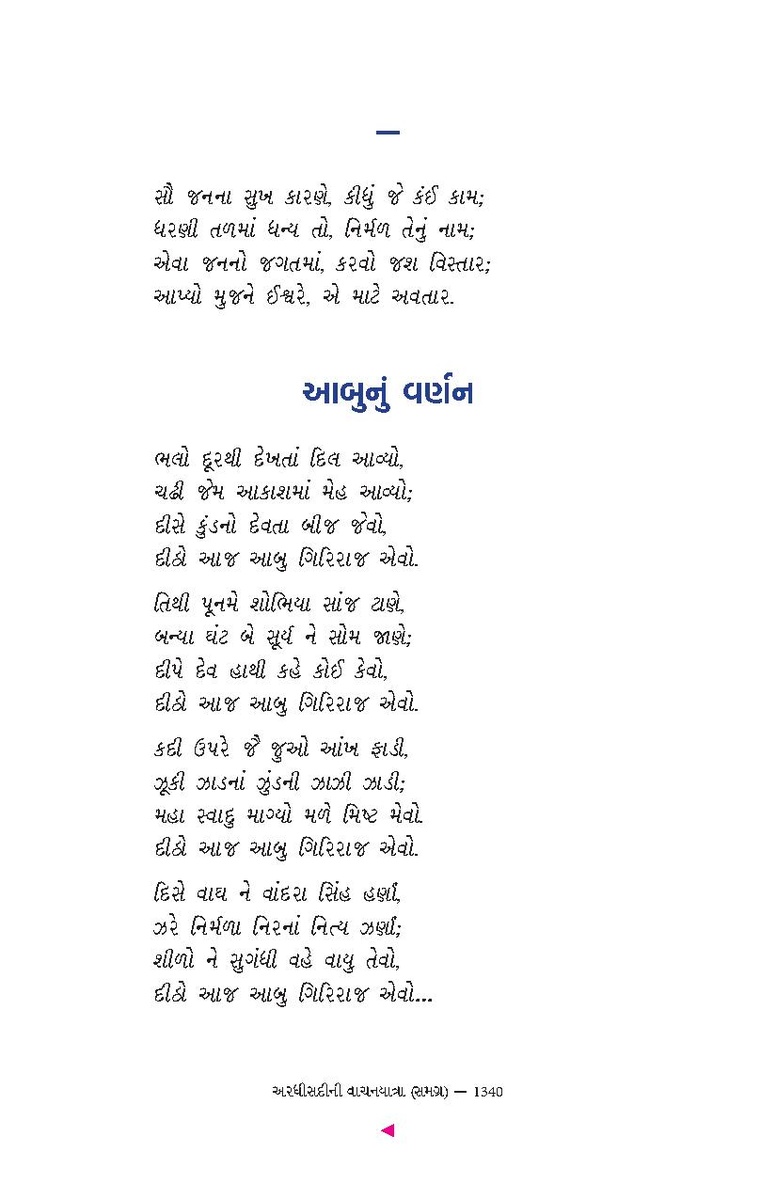 —
સૌ જનના સુખ કારણે, કીધું જે કંઈ કામ;
ધરણી તળમાં ધન્ય તો, નિર્મળ તેનું નામ;
એવા જનનો જગતમાં, કરવો જશ વિસ્તાર;
આપ્યો મુજને ઈશ્વરે, એ માટે અવતાર.
આબુનું વર્ણન
ભલો દૂરથી દેખતાં દિલ આવ્યો,
ચઢી જેમ આકાશમાં મેહ આવ્યો;
દીસે કુંડનો દેવતા બીજ જેવો,
દીઠો આજ આબુ ગિરિરાજ એવો.
તિથી પૂનમે શોભિયા સાંજ ટાણે,
બન્યા ઘંટ બે સૂર્ય ને સોમ જાણે;
દીપે દેવ હાથી કહે કોઈ કેવો,
દીઠો આજ આબુ ગિરિરાજ એવો.
કદી ઉપરે જૈ જુઓ આંખ ફાડી,
ઝૂકી ઝાડનાં ઝુંડની ઝાઝી ઝાડી;
મહા સ્વાદુ માગ્યો મળે મિષ્ટ મેવો.
દીઠો આજ આબુ ગિરિરાજ એવો.
દિસે વાઘ ને વાંદરા સિંહ હર્ણાં,
ઝરે નિર્મળા નિરનાં નિત્ય ઝર્ણાં;
શીળો ને સુગંધી વહે વાયુ તેવો,
દીઠો આજ આબુ ગિરિરાજ એવો...
અરધીસદીની વાચનયાત્રા (સમગ્ર) — 1340